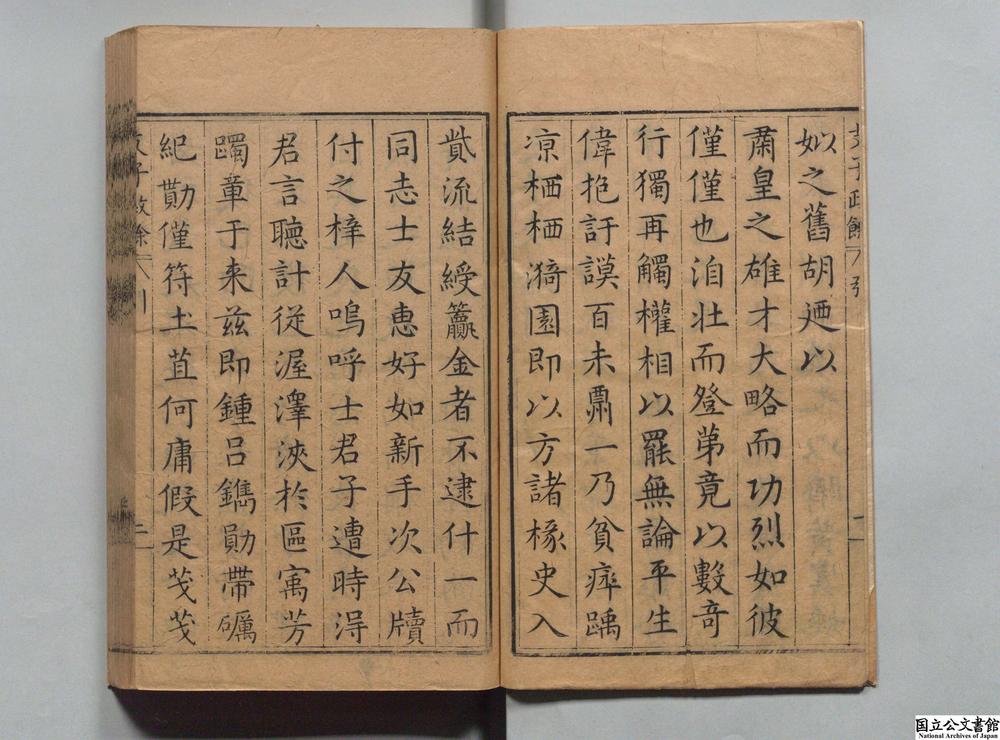 如之舊胡廼以
肅皇之雄才大略而功烈如彼
僅僅也洎壯而登苐竟以數奇
行獨再觸權相以罷無論平生
偉抱訏謨百未鬻一乃貧瘁踽
凉栖栖漪園即以方諸椽史入
貲流結綬籯金者不逮什一而
同志士友惠好如新手次公牘
付之梓人嗚呼士君子遭時淂
君言聽計從渥澤浹於區㝢芳
躅章于来兹即鍾呂鐫勛帶礪
紀勩僅符土苴何庸假是戔戔
二
国立公文書館
National Archives of Japan